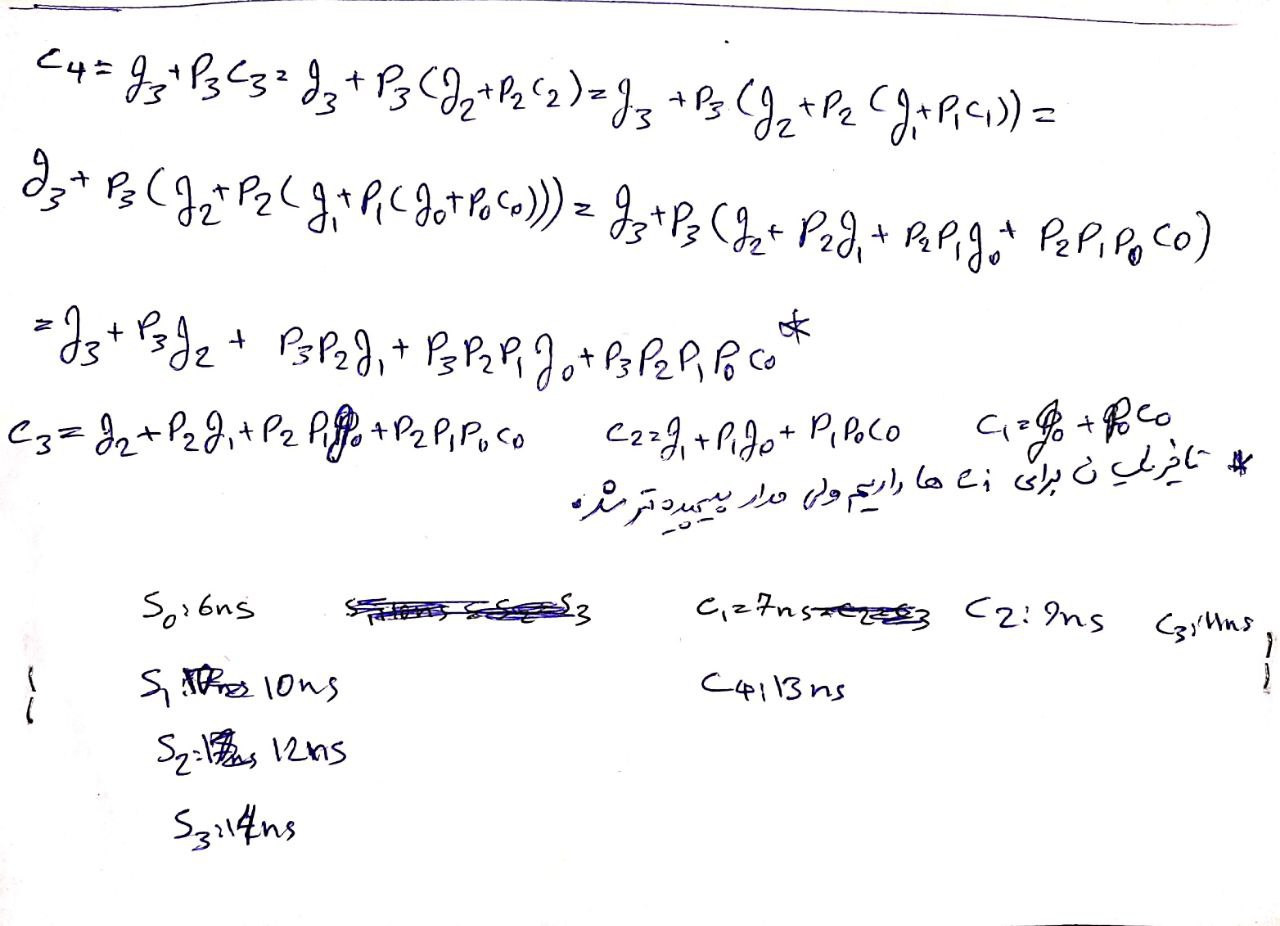 C4 = g3 + P3 C3 = g3 + P3 (g2 + P2 C2) = g3 + P3 (g2 + P2 (g1 + P1 C1)) =
g3 + P3 (g2 + P2 (g1 + P1 (g0 + P0 C0))) = g3 + P3 (g2 + P2 g1 + P2 P1 g0 + P2 P1 P0 C0)
= g3 + P3 g2 + P3 P2 g1 + P3 P2 P1 g0 + P3 P2 P1 P0 C0 *
C3 = g2 + P2 g1 + P2 P1 g0 + P2 P1 P0 C0 C2 = g1 + P1 g0 + P1 P0 C0 C1 = g0 + P0 C0
* تاخیر یکسان برای Ci ها داریم ولی مدار پیچیده تر شده.
S0: 6ns C1 = 7ns C2: 9ns C3: 11ns
S1: 10ns C4: 13ns
S2: 12ns
S3: 14ns